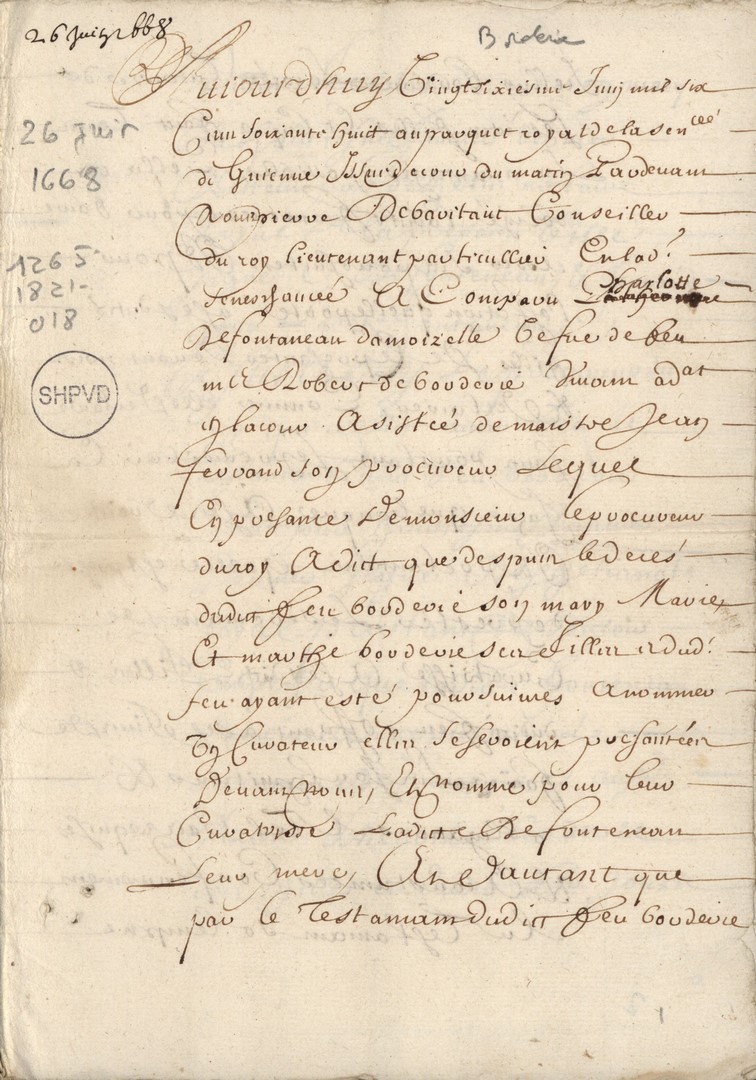 26 Juin 1668
Borderie
26 Juin
1668
1265-
1821-
018
SHPVD
Aujourdhuy Vingtsixiesme Juin mil six
Cens soixante huit au parquet royal de la sen.cée
de Guienne Issue de cour du matin Pardevant
nous pierre Debavitaut Conseiller
du roy lieutenant particullier En lad.e
seneschaucée A Comparu Charlotte
Defontaneau damoizelle Vefve de feu
me Robert de borderie Vivant adat
en la cour Asistée de maistre Jean
ferrand son procureur Lequel
En presance De monsieur le procureur
du roy A dict que despuis le decés
dudict feu borderie son mary Marie
Et marthe borderie ses filles et dud.
feu ayant esté poursuivies A nommer
Un Curateur elles se seroient presantées
Devant nous, Et Nommé pour leur
Curatrisse Ladicte Defonteneau
Leur mere, Et d'autant que
par le Testamant dudict feu borderie